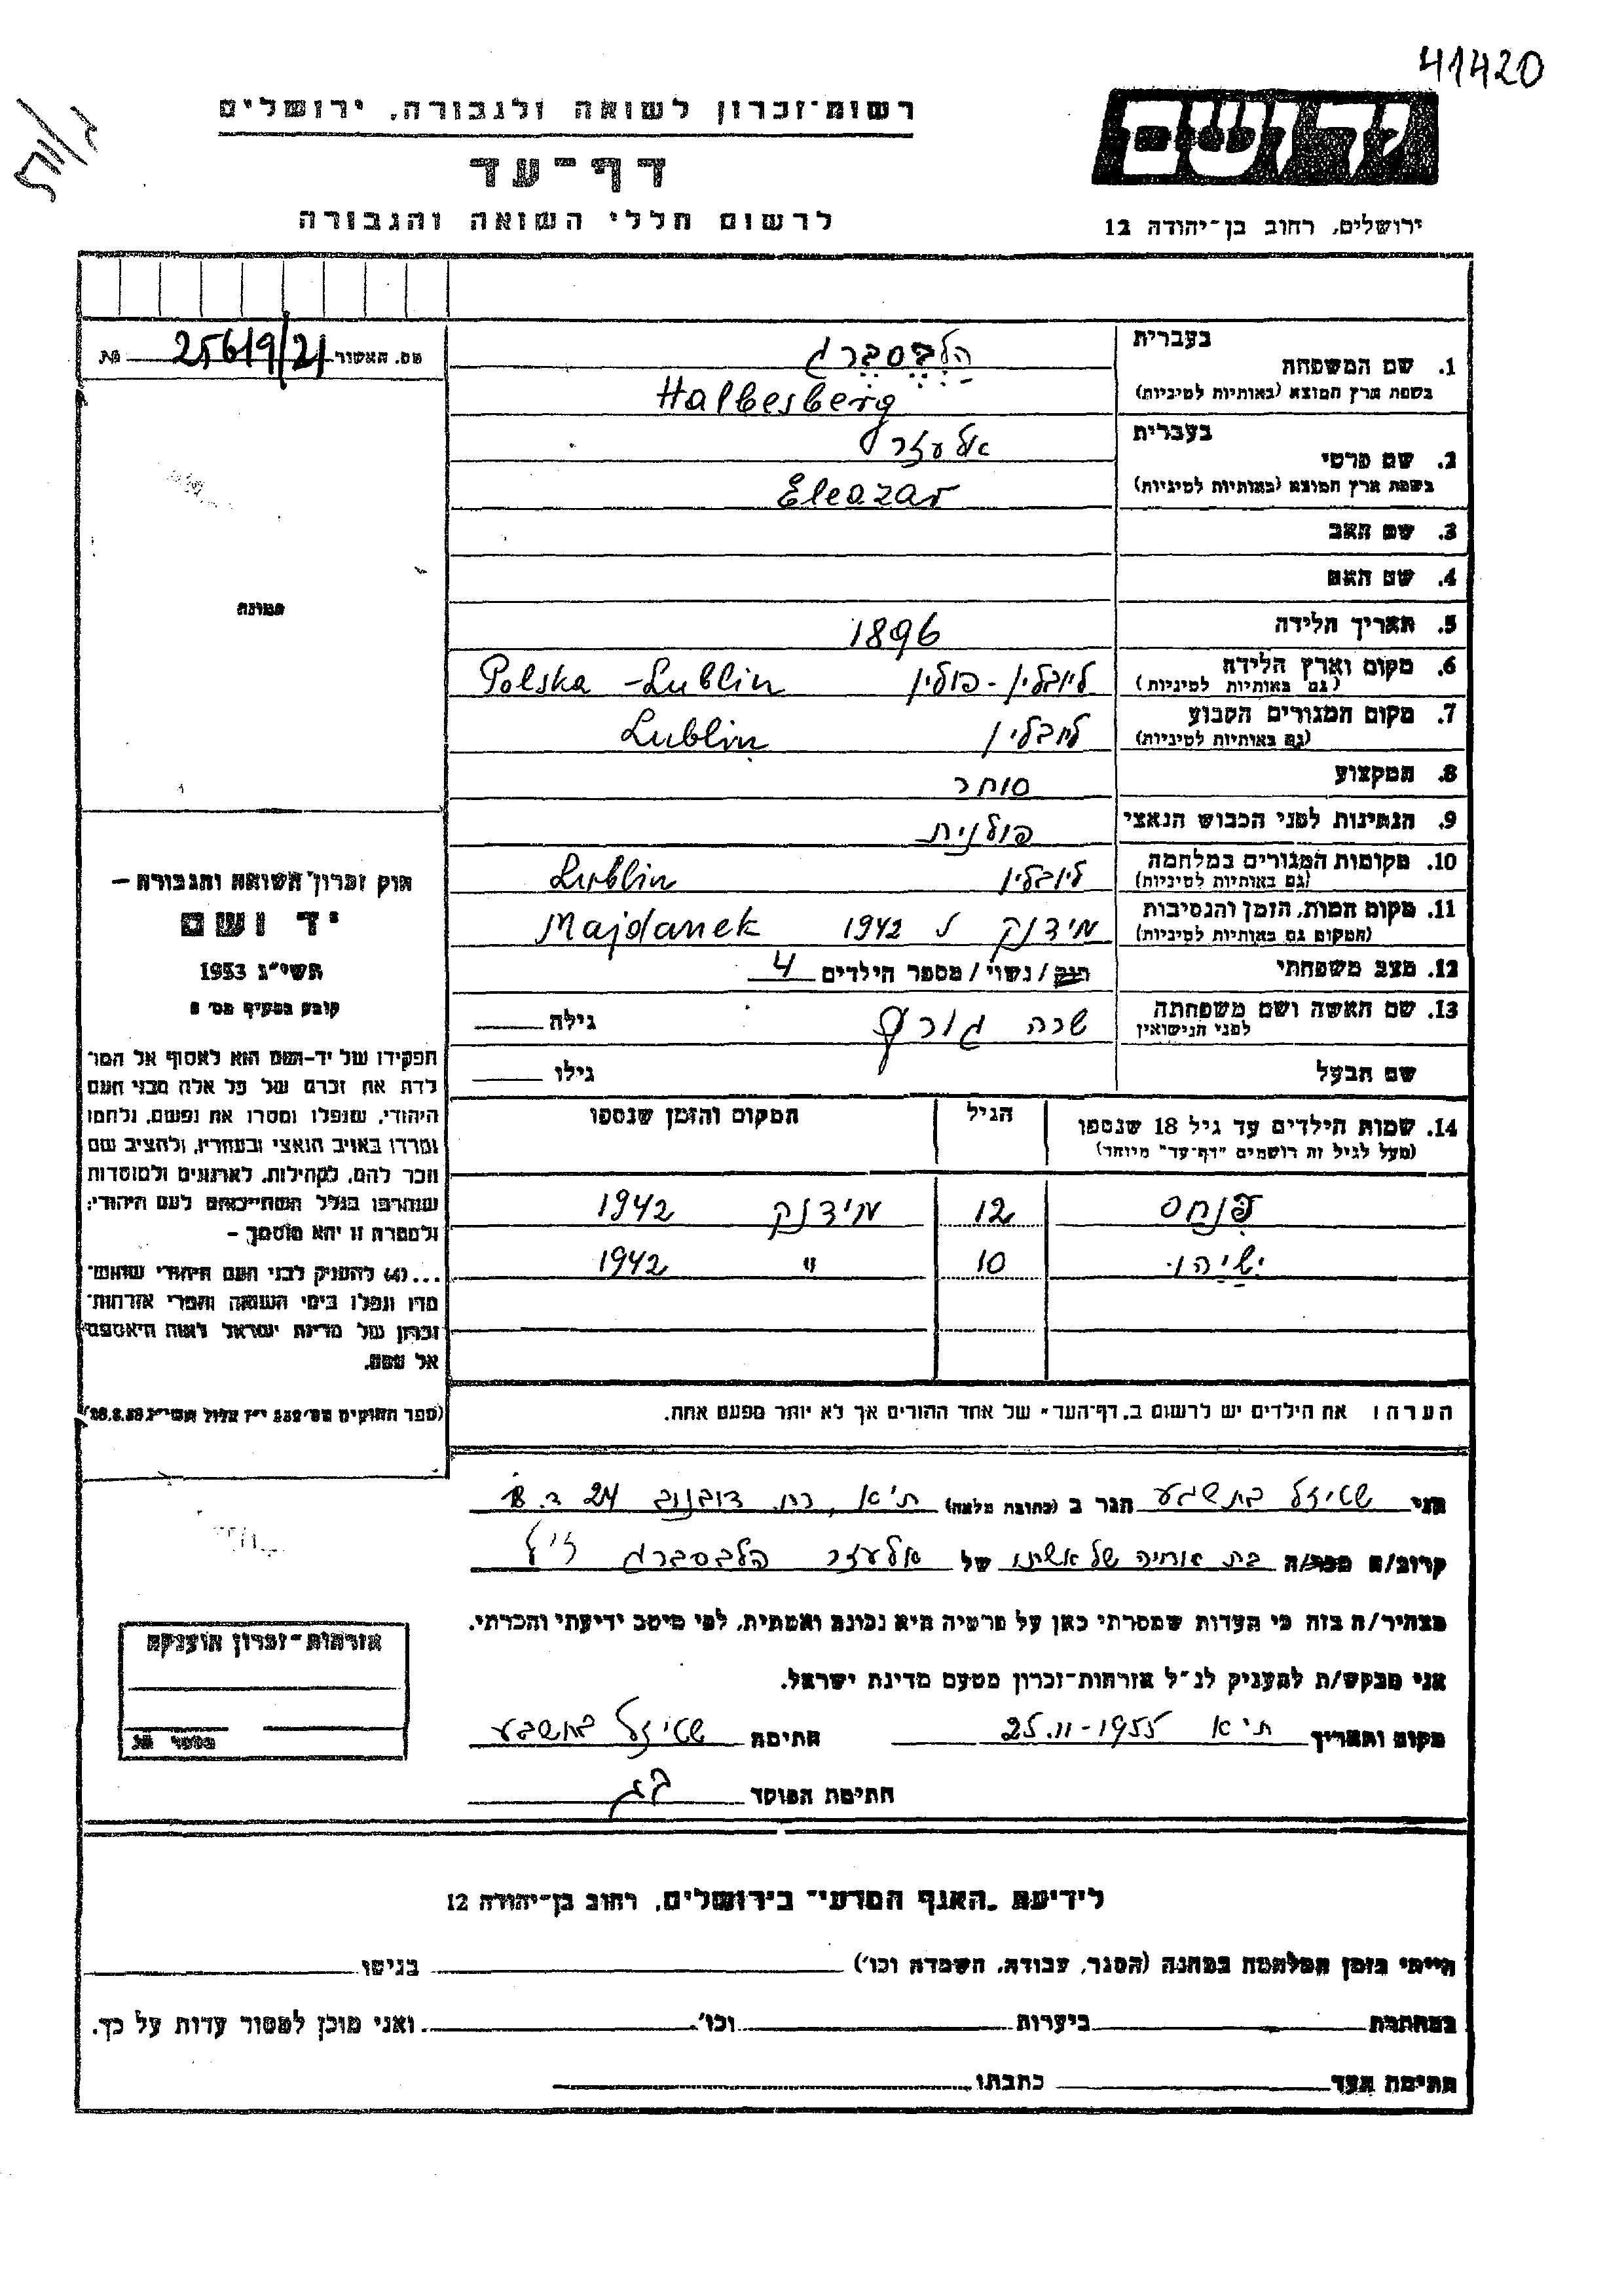 41420
רשות־זכרון לשואה ולגבורה, ירושלים
דף־עד
לרשום חללי השואה והגבורה
יד ושם
ירושלים, רחוב בן־יהודה 12
מס. האשור 25619/21
בעברית
1. שם המשפחה הלבסברג
בשפת ארץ המוצא (באותיות לטיניות) Halbesberg
בעברית
2. שם פרטי אלעזר
בשפת ארץ המוצא (באותיות לטיניות) Eleazar
3. שם האב
4. שם האם
5. תאריך הלידה 1896
6. מקום וארץ הלידה ליובלין - פולין Polska - Lublin
(גם באותיות לטיניות)
7. מקום המגורים הקבוע ליובלין Lublin
(גם באותיות לטיניות)
8. המקצוע סוחר
9. הנתינות לפני הכבוש הנאצי פולנית
10. מקומות המגורים במלחמה ליובלין Lublin
(גם באותיות לטיניות)
11. מקום המות, הזמן והנסיבות מידנק 1942 Majdanek
(המקום גם באותיות לטיניות)
12. מצב משפחתי רוק / נשוי / מספר הילדים 4
13. שם האשה ושם משפחתה לפני הנישואין שרה גילה
שם הבעל גילו
14. שמות הילדים עד גיל 18 שנספו הגיל המקום והזמן שנספו
(מעל לגיל זה רושמים "דף־עד" מיוחד)
פנחס 12 מידנק 1942
ישיהו 10 " 1942
הערה: את הילדים יש לרשום ב"דף־העד" של אחד ההורים אך לא יותר מפעם אחת.
תמונה
חוק זכרון השואה והגבורה –
יד ושם
תשי"ג 1953
קובע בסעיף מס׳
תפקידו של יד־ושם הוא לאסוף אל המו־
לדת את זכרם של כל אלה מבני העם
היהודי, שנפלו ומסרו את נפשם, נלחמו
ומרדו באויב הנאצי ובעוזריו, ולהציב שם
וזכר להם, לקהילות, לארגונים ולמוסדות
שנחרבו בגלל השתייכותם לעם היהודי;
ולמטרה זו יהא מוסמך –
...(4) להעניק לבני העם היהודי שהוש־
מדו ונפלו בימי השואה והמרי אזרחות־
זכרון של מדינת ישראל לאות היאספם
אל עמם.
(ספר החוקים מס׳ 132 י"ז אלול תשי"ג 28.8.53)
אני שטיזל בתשבע הגר ב (כתובת מלאה) ת"א, רח. דובנוב 24 ד. 8
קרוב/ה מכר/ה בת אחיה של אשתו של אלעזר הלבסברג ז"ל
מצהיר/ה בזה כי העדות שמסרתי כאן על פרטיה היא נכונה ואמתית, לפי מיטב ידיעתי והכרתי.
אני מבקש/ת להעניק לנ"ל אזרחות־זכרון מטעם מדינת ישראל.
מקום ותאריך ת"א 25.11-1955 חתימה שטיזל בתשבע
חתימת הפוקד
אזרחות־זכרון הוענקה
מספר
לידיעת "האגף המדעי" בירושלים, רחוב בן־יהודה 12
הייתי בזמן המלחמה במחנה (הסגר, עבודה, השמדה וכו׳) בגיטו
במחתרת ביערות וכו׳ ואני מוכן למסור עדות על כך.
חתימת העד כתבתו